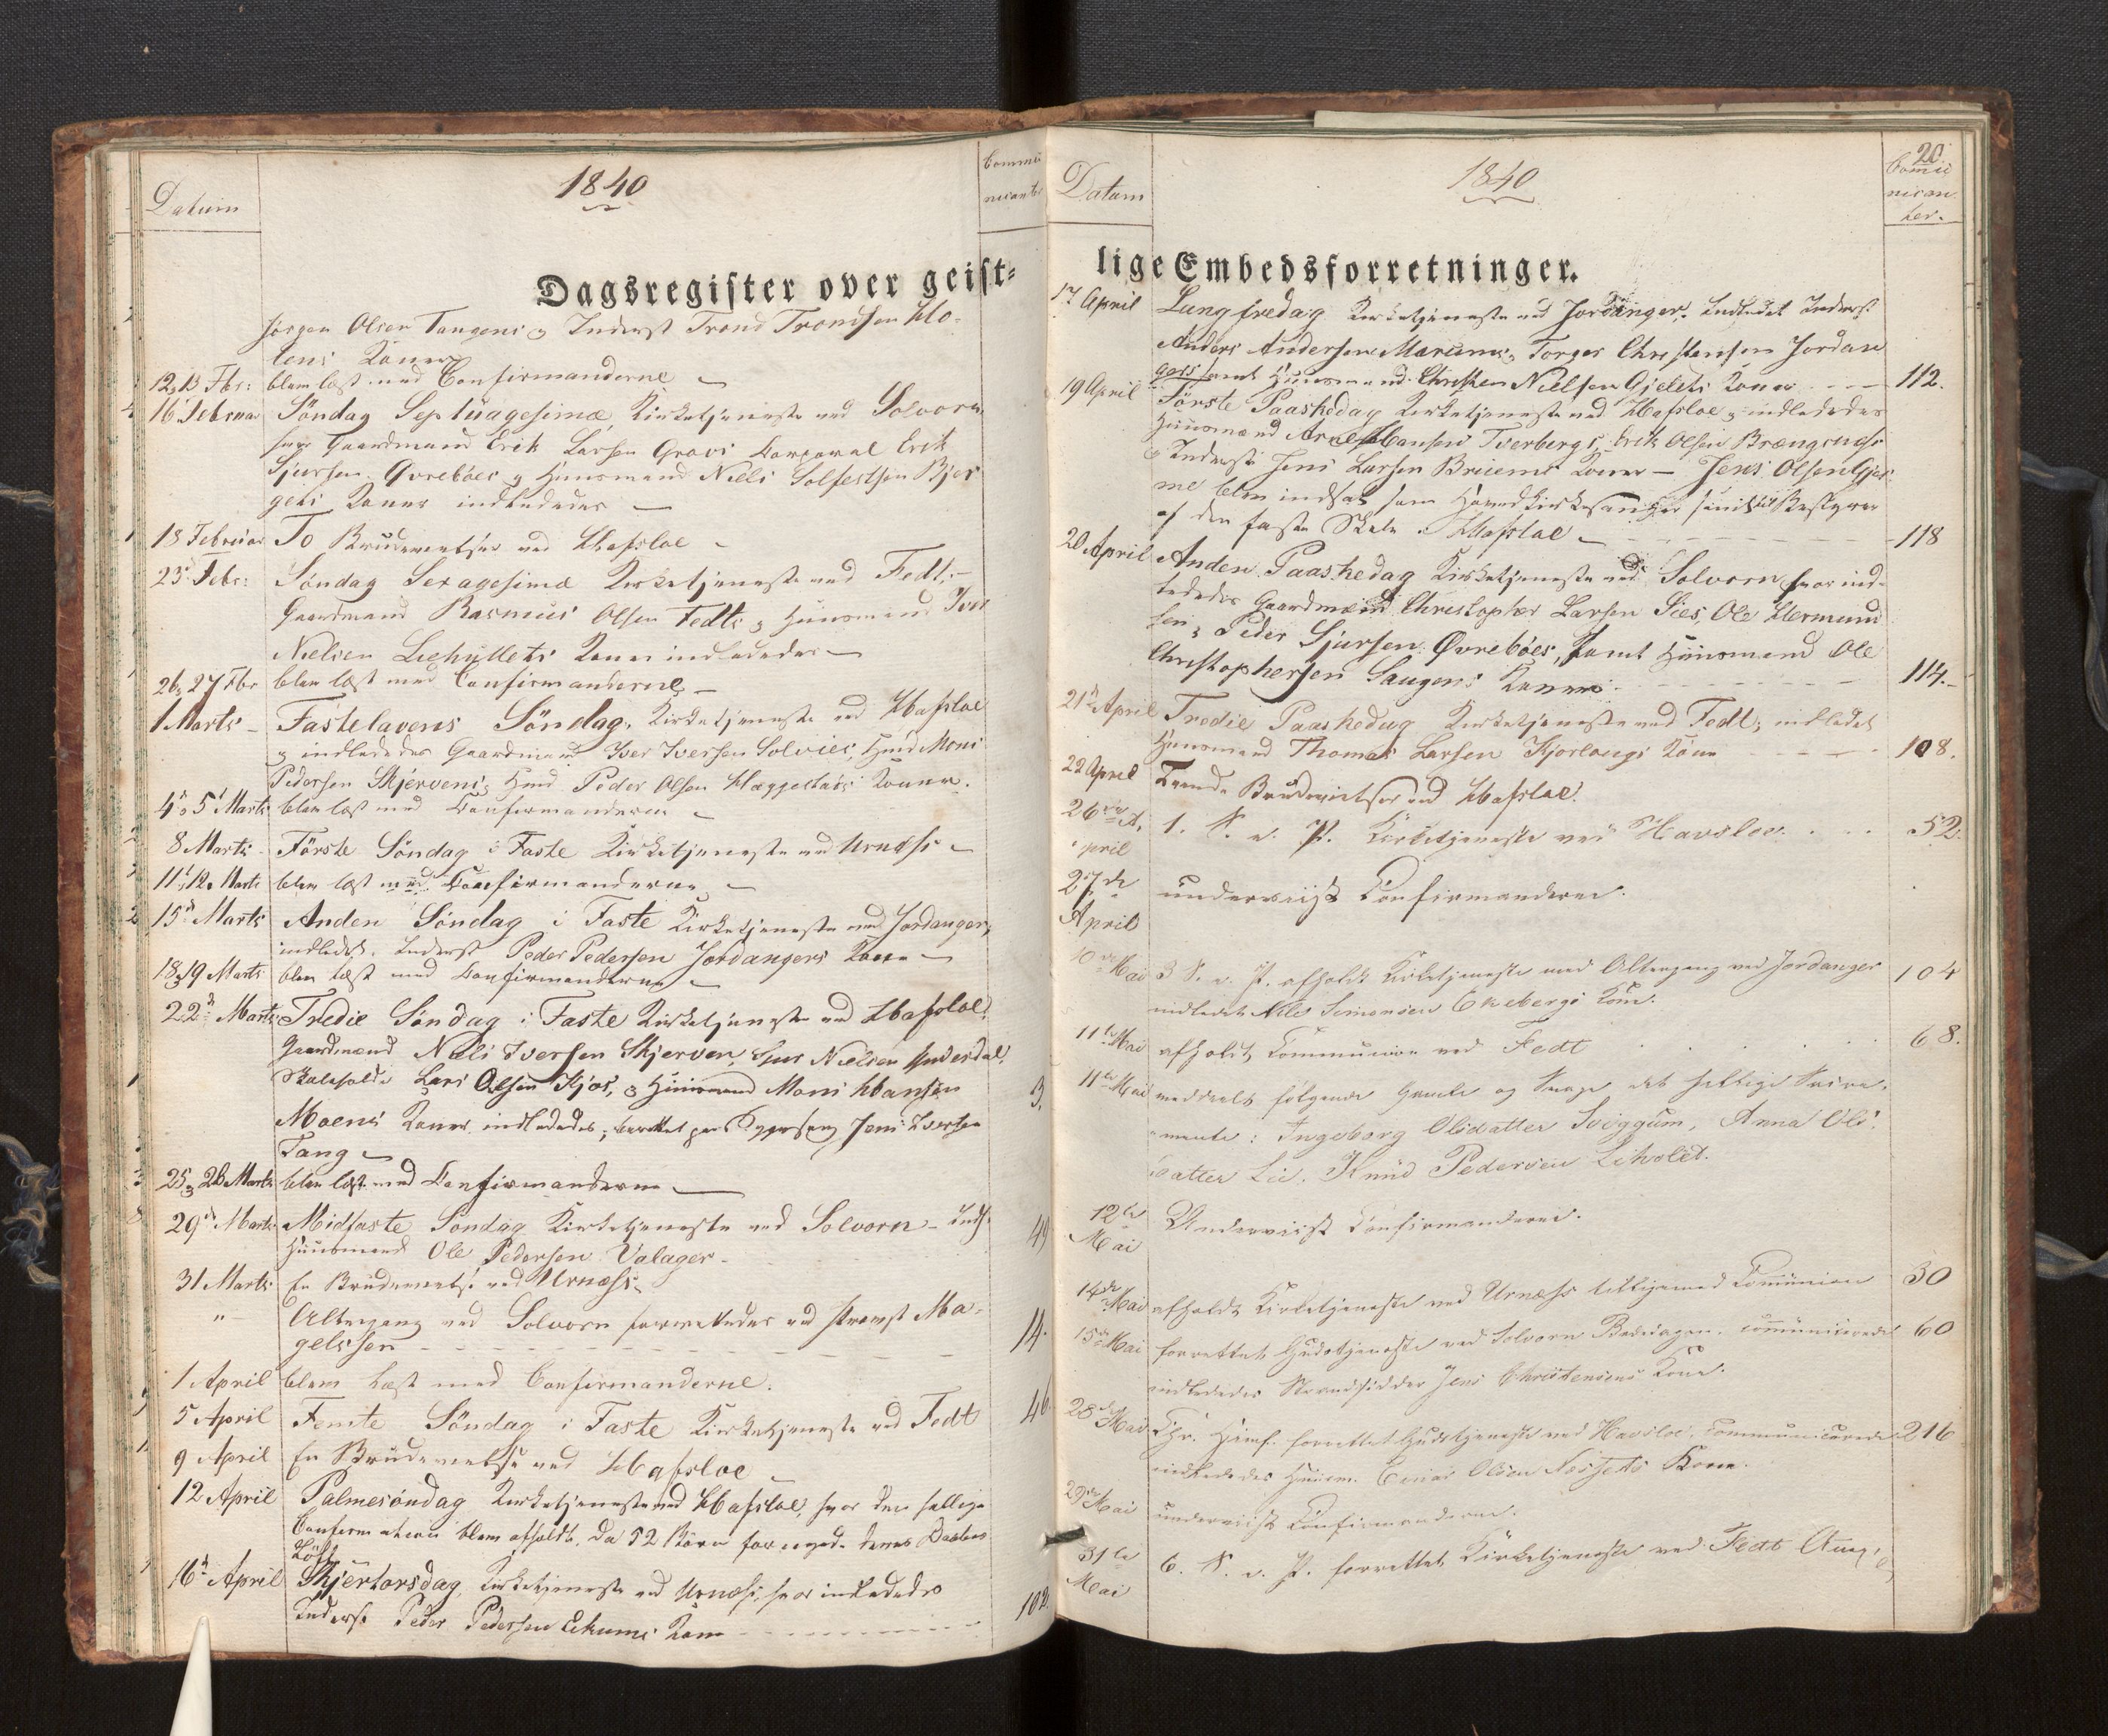 Datum
1840
Commu
nicanter
Dagsregister over geist=
Jørgen Olsen Tangens og Inderst Trond Trondsen Klo-
tens Koner
12 og 13 Fbr: blev læst med Confirmanderne
16 Februar Søndag Septuagesimæ Kirketjeneste ved Solvorn
hvor Gaardmand Erik Larsen Grovi Korporal Erik
Sjursen Qvrebøes og Huusmand Niels Solfestsen Bjer
gets Koner indlededes
18 Februar To Brudevielser ved Hafsloe
23 Febr: Søndag Sexagesimæ Kirketjeneste ved Fedt,
Gaardmand Rasmus Olsen Fedts og Huusmand Iver
Nielsen Liehullets Koner indlededes
26 og 27 Fbr blev læst med Confirmanderne
1 Marts Fastelavens Søndag. Kirketjeneste ved Hafsloe
og indlededes Gaardmand Iver Iversen Solvies, Huusmd Mons
Pedersen Skjervens, Huusmd Peder Olsen Hæggestads Koner.
4 og 5 Marts blev læst med Confirmanderne
8 Marts Förste Söndag i Faste Kirketjeneste ved Urnæss
11 og 12 Marts blev læst med Confirmanderne
15 Marts Anden Söndag i Faste Kirketjeneste ved Jordanger,
indledet Inderst Peder Pedersen Jordangers Kone
18 og 19 Marts blev læst med Confirmanderne
22 Marts Tredie Søndag i Faste Kirketjeneste ved Hafsloe.
Gaardmænd Niels Iversen Skjerven, Sjur Nielsen
Skoleholder Lars Olsen Kjos, og Huusmand Mons Hansen 3.
Moens Koner indlededes; Jens Iversen
Tang
25 og 26 Marts blev læst med Confirmanderne
29 Marts Midfaste Søndag Kirketjeneste ved Solvorn - Indl: 49
Huusmand Ole Pedersen Valager
31 Marts En Brudevielse ved Urnæss
" Altergang ved Solvorn forrettedes ved Provst Ma-
gelssen 14.
1 April blev læst med Confirmanderne.
5 April Femte Söndag i Faste Kirketjeneste ved Fedt 46
9 April En Brudevielse ved Hafsloe
12 April Palmesöndag Kirketjeneste ved Hafsloe, hvor den hellige
Confirmation blev afholdt, da 52 Börn fornyede deres Daabes
Löft
16 April Skjertorsdag Kirketjeneste ved Urnæss, hvor indlededes
Inderst Peder Pedersen Ekums Kone 102.
Datum
1840
20
Comu
nican
ter.
lige Embedsforretninger.
17 April Langfredag Kirketjeneste ved Jordanger. Indledet Inderst
Anders Andersen Marums, Torger Christensen Jordan
gers samt Huusmand Christen Nielsen Gjelets Koner 112.
19 April Förste Paaskedag Kirketjeneste ved Hafsloe, og indlededes
Huusmænd Arne Hansen Tverbergs, Erik Olsen
og Inderst Jens Larsen Koner - Jens Olsen Gjer
me blev indsat som Hovedkirkesanger samt til Bestyrer
af den faste Skole i Hafsloe 118
20 April Anden Paaskedag Kirketjeneste ved Solvorn hvor ind-
lededes Gaardmænd Christopher Larsen Sies, Ole Hermund
sen, Peder Sjursen Øvrebóes, samt Huusmand Ole
Christophersen Saugens Koner 114.
21 April Tredie Paaskedag Kirketjeneste ved Fedt, indledet
Huusmand Thomas Larsen Kjorlaugs Kone 108.
22 April Tvende Brudevielser ved Hafsloe.
26de A,
pril 1. S. e. P. Kirketjeneste ved Havsloe. 52.
27de
April underviist Confirmanderne.
10de Mai 3 S. e. P. afholdt Kirketjeneste med Altergang ved Jordanger 104
indledet Nils Simonsen Ekebergs Kone.
11te Mai afholdt Communion ved Fedt 68.
11te Mai meddeelt følgende Gamle og Svage det hellige Sacra-
mente: Ingeborg Olsdatter Sviggum, Anna Ols
datter Lie. Knud Pedersen Liholet.
12te
Mai Underviist Confirmanderne.
14de Mai afholdt Kirketjeneste ved Urnæss tilligemed Communion 30
15de Mai forrettet Gudstjeneste ved Solvorn Bededagen. communicerede 60
indlededes Strandsidder Jens Christensens Kone.
28de Mai Chr. Himf. forrettet Gudstjeneste ved Havsloe. Communicerede 216
indlededes Huusm. Einar Olsen Nessets Kone.
29de Mai underviist Confirmanderne.
31te
Mai 6. S. e. P. forrettet Kirketjeneste ved Fedt